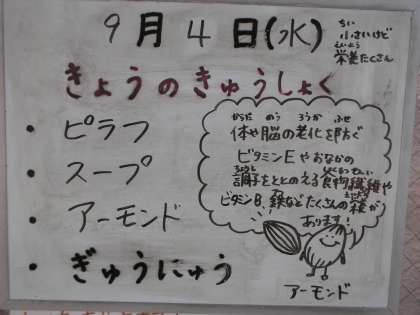 9月4日(水)
ちい
小さいけど
えいよう
栄養たくさん
きょうのきゅうしょく
・ピラフ
・スープ
・アーモンド
・ぎゅうにゅう
からだ のう ろうか ふせ
体や脳の老化を防ぐ
ビタミンEやおなかの
調子をととのえる食物繊維や
ビタミンB、鉄などたくさんの種が
あります!
アーモンド